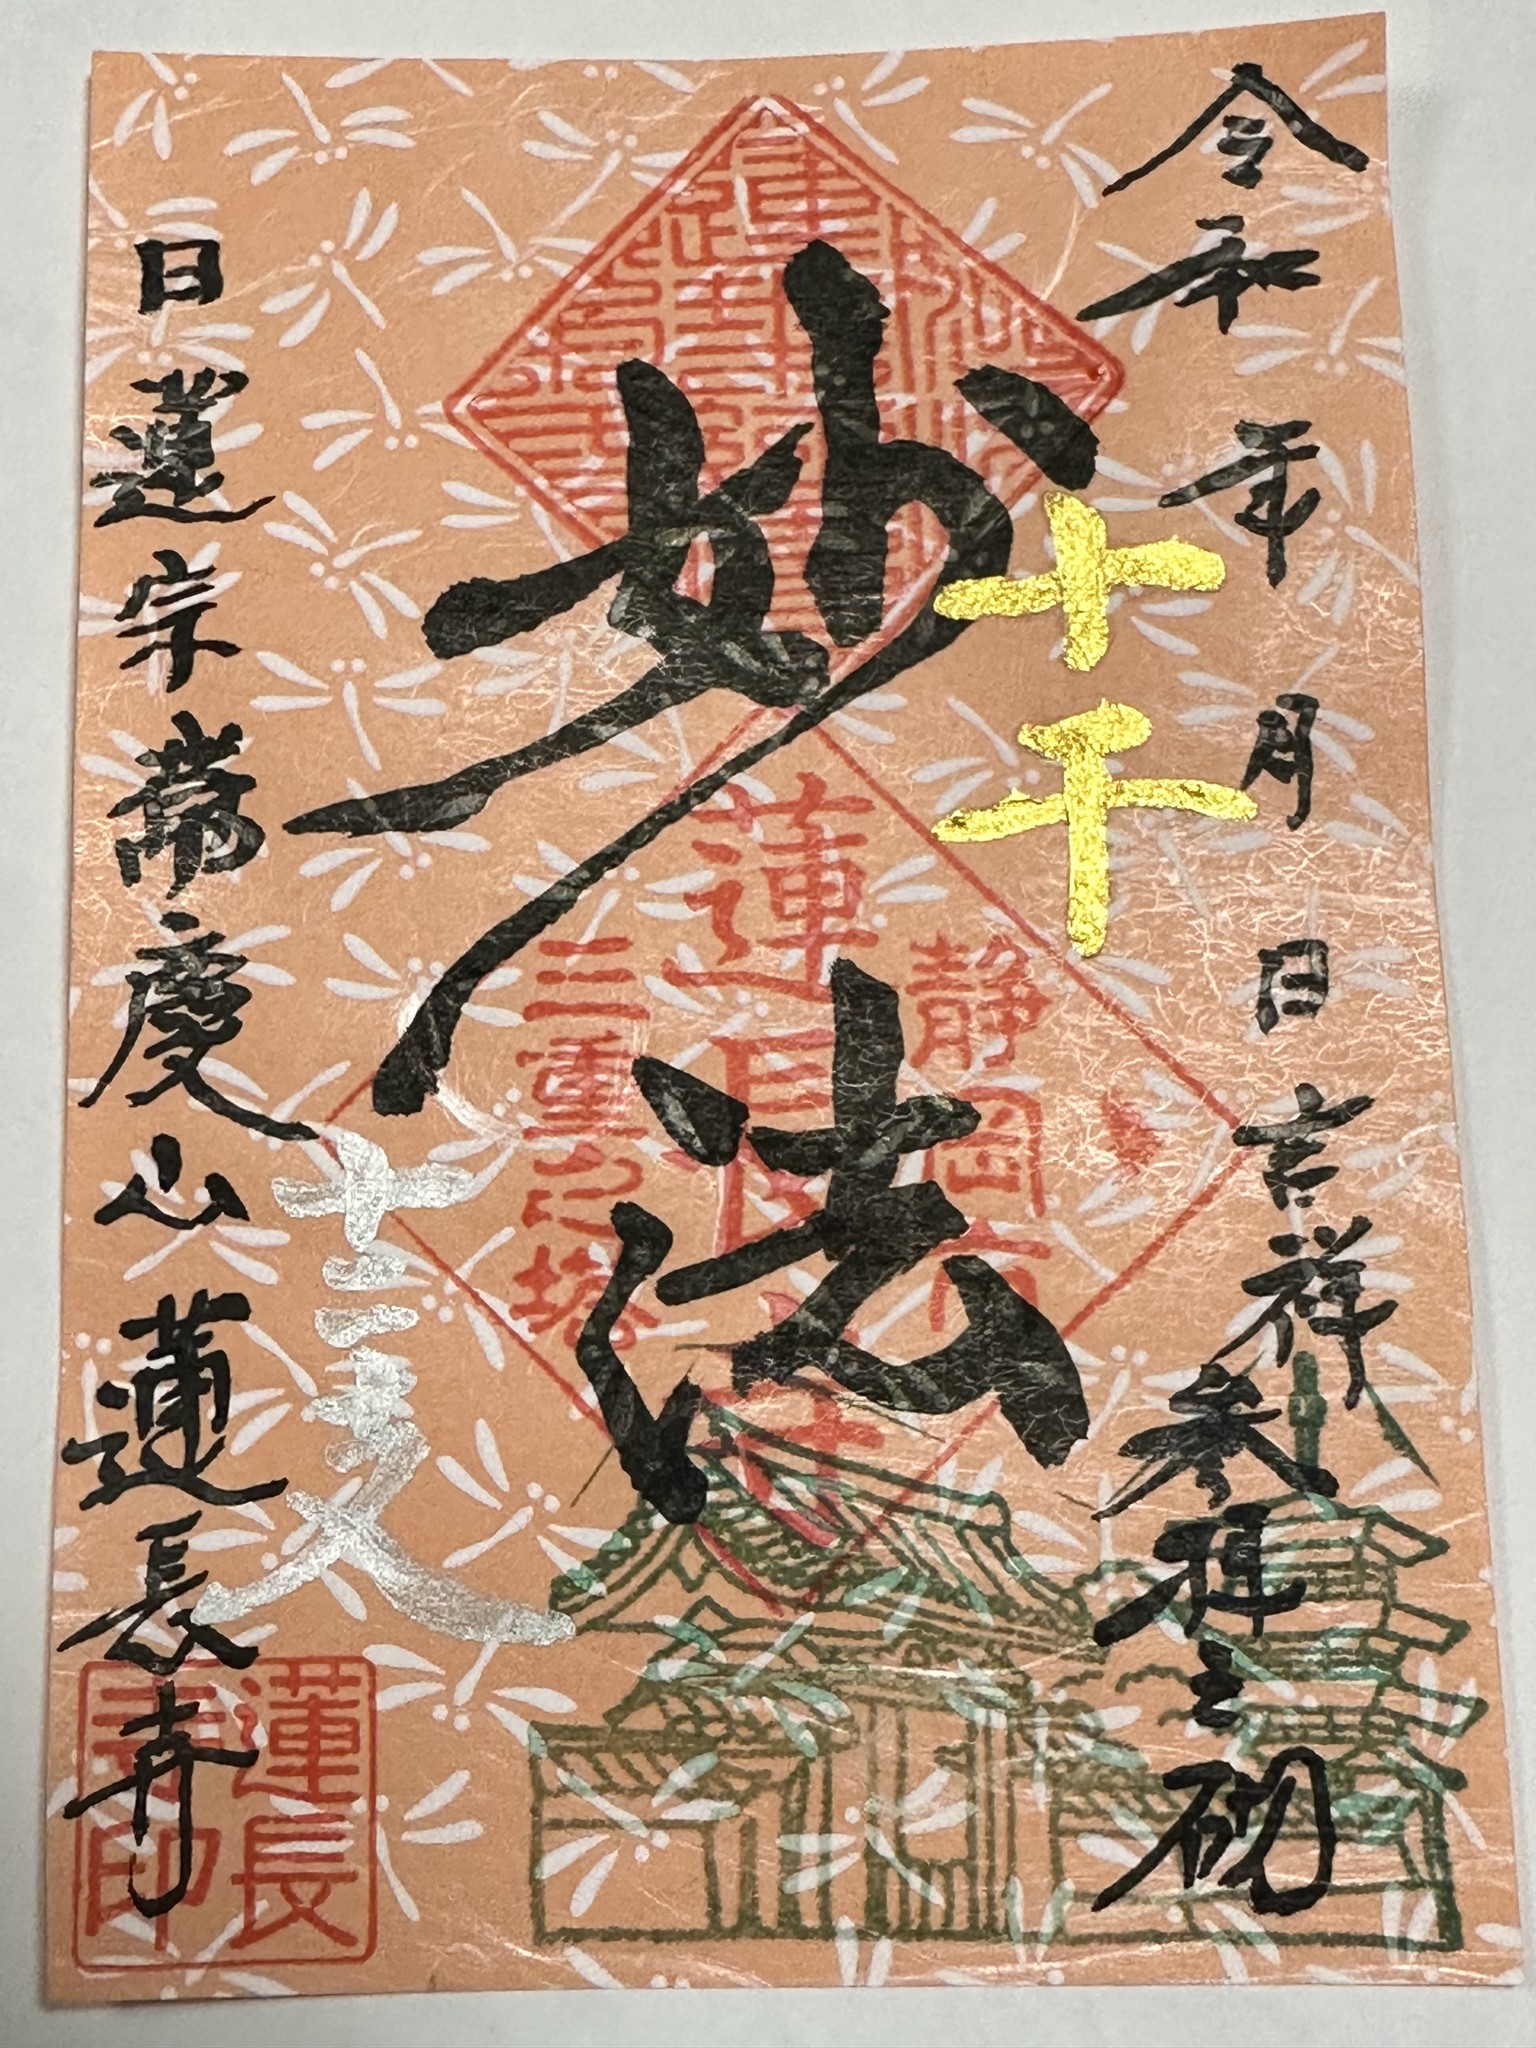 令和 年 月 日 吉祥参拝之砌
十干
妙法
静岡
蓮長寺
三重之塔
十二支
日蓮宗常慶山蓮長寺
蓮長寺印